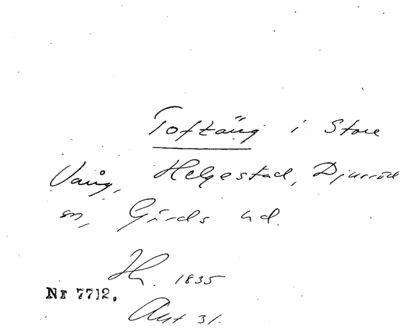 Toftäng i Store
Vång, Helgestad, Djurröd
sn, Gärds hd.
H. 1835
Nr 7712.
Akt 31.